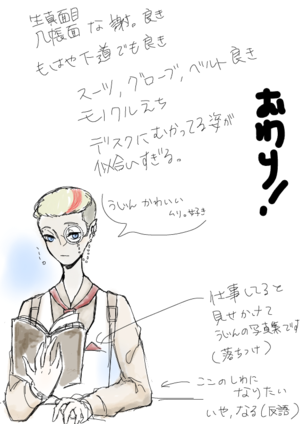 生真面目
几帳面 な 射。良き
もはや下道でも良き
スーツ, グローブ, ベルト 良き
モノクルえち
デスクにむかってる姿が
似合いすぎる。
おわり!
うじん かわいい
ムリ。好き
仕事してると
見せかけて
うじんの写真集です
(落ちつけ)
ここのしわに
なりたい
いや, なる (反語)